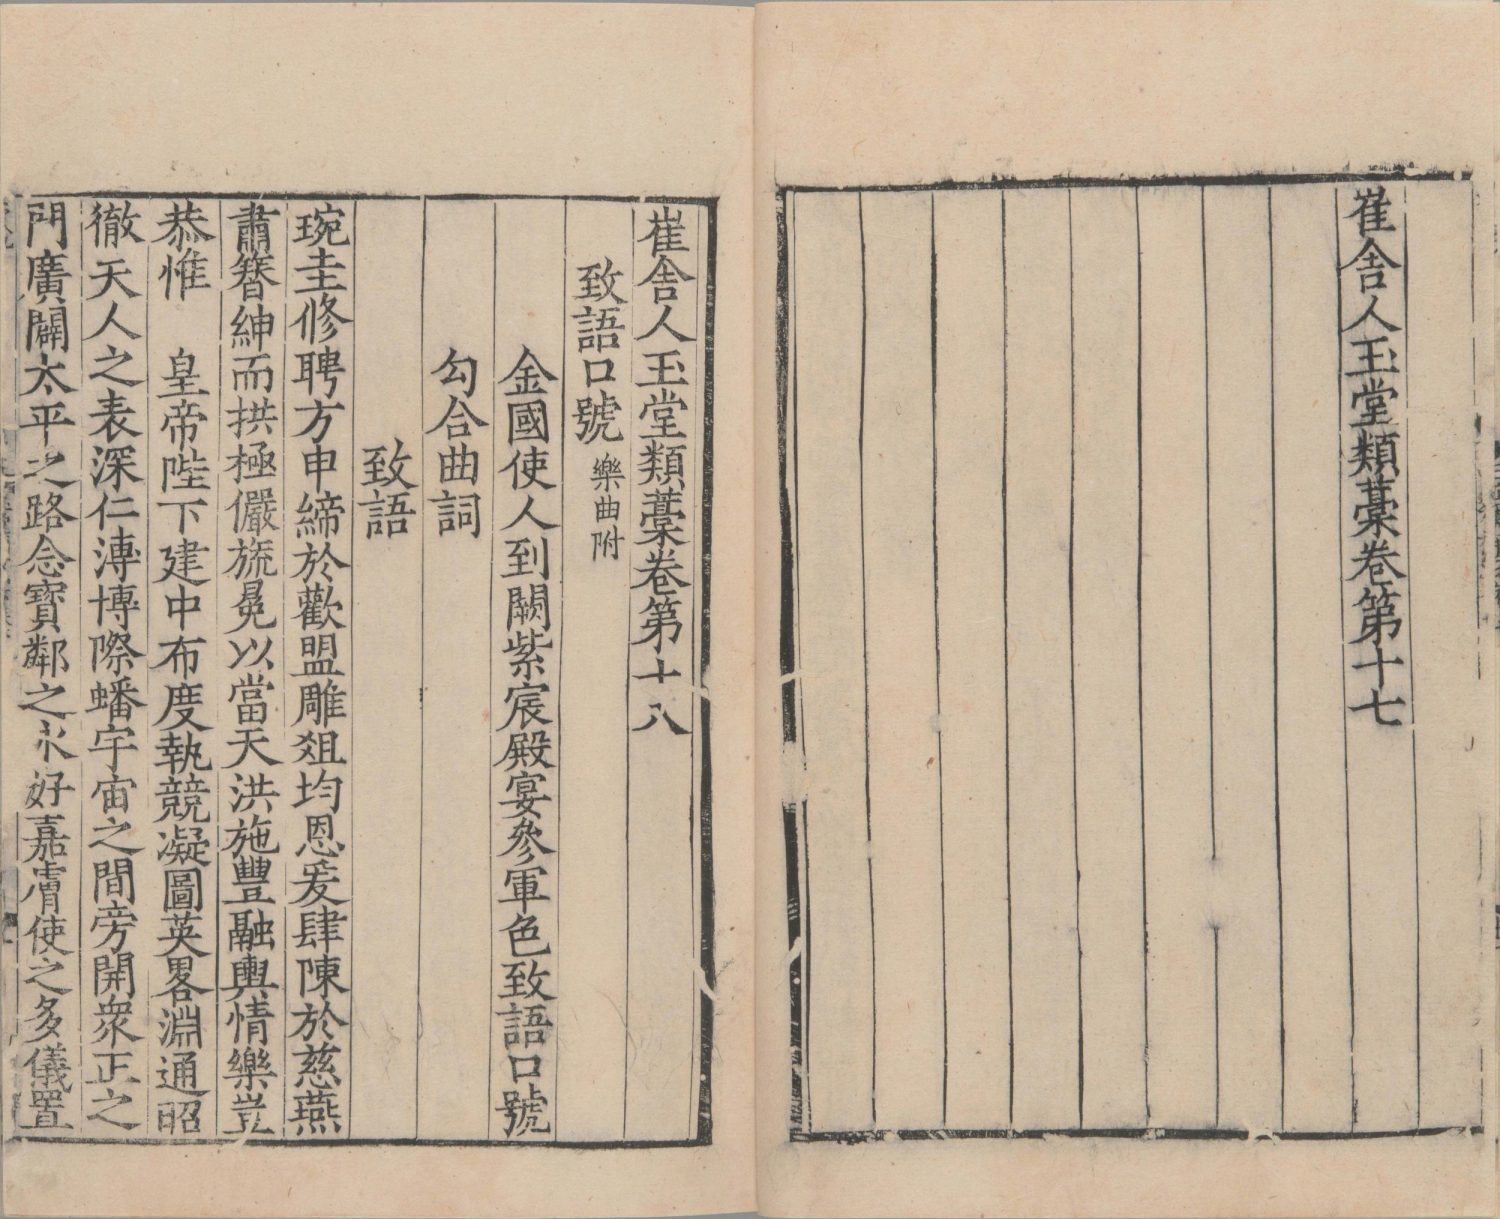 崔舍人玉堂類藁卷第十七
崔舍人玉堂類藁卷第十八
致語口號 樂曲附
金國使人到闕紫宸殿宴參軍色致語口號
勾合曲詞
致語
琬圭修聘方申締於歡盟雕俎均恩爰肆陳於慈燕
肅簪紳而拱極儼旒冕以當天洪施豐融輿情樂豈
恭惟 皇帝陛下建中布度執競凝圖英畧淵通昭
徹天人之表深仁漙博際蟠宇宙之間旁開衆正之
門廣闢太平之路念寶鄰之永好嘉膚使之多儀置